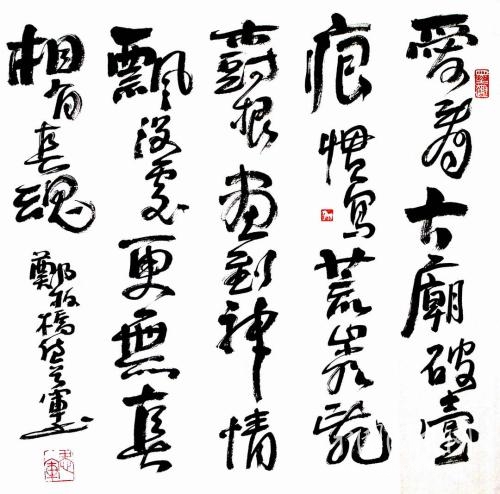 愛看古廟破臺
痕慣寫荒崖亂
樹根畫到神情
飄没處更無真
相有真魂
鄭板橋